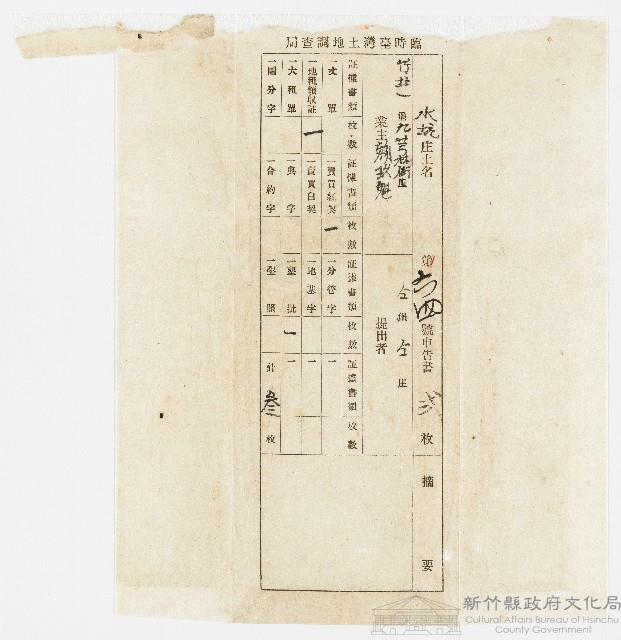 臨時臺灣土地調查局
水坑庄土名
第六四號申告書
弍枚
摘要
竹北一堡九芎林街庄
業主
仝堡仝庄
提出者
証據書類 枚數 証據書類 枚數 証據書類 枚數 証據書類 枚數
一丈單 一賣買紅契 一 一分管字 一
一地租領收証 一 一賣買白契 一地基字 一
一大租單 一典字 一墾批 一 一
一鬮分字 一合約字 一墾照 計叁枚
新竹縣政府文化局
Cultural Affairs Bureau of Hsinchu
County Government